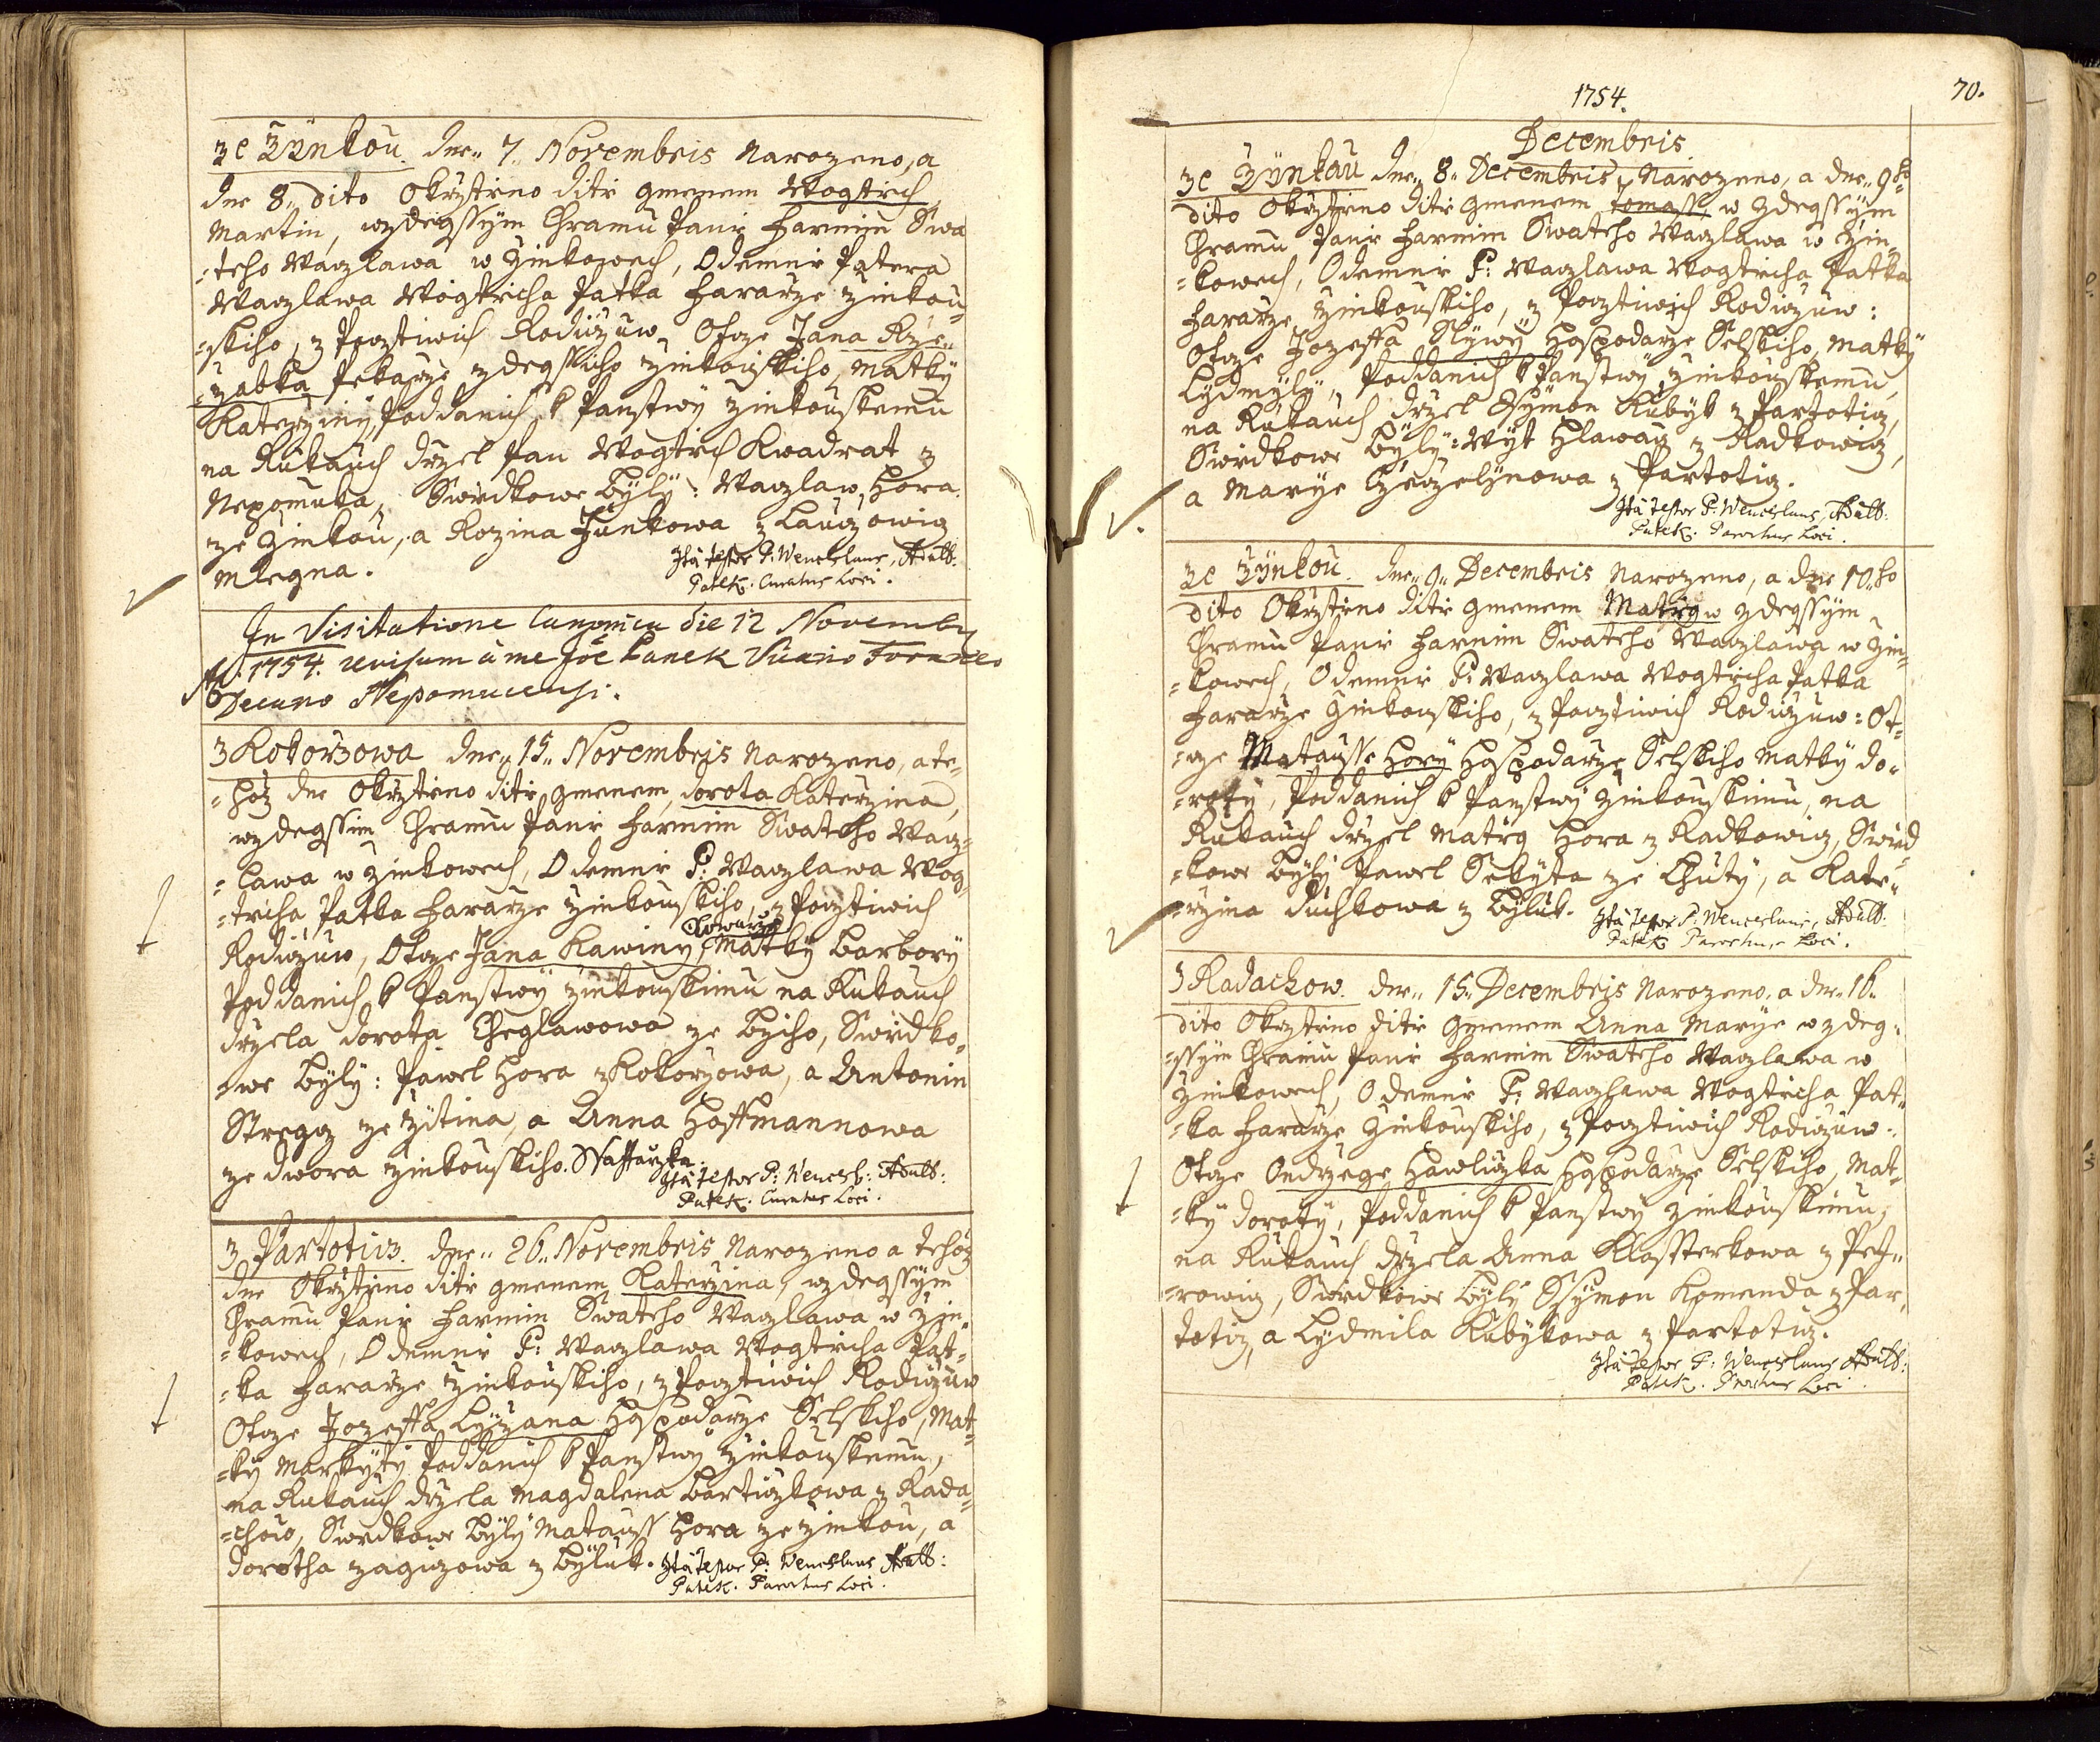 ze Žynkou. dne 7. Novembris Narozeno, a
dne 8. dito Okrztěno dítě gmenem Wogtěch
Martin, w zdegssým Chramu Panie Farním Swa
=teho Waczlawa w Žinkowech, Odemnie Patera
Waczlawa Wogtiecha Patka Fararze Žinkou=
=skiho, z Pocztiwich Rodiczuw Otcze Jana Rze=
=zabka Pekarze zdegssiho Žinkouskiho, Matky
Katerziny, Poddanich k Panstwy Žinkouskemu
na Rukauch drzel Pan Wogtiech Kwadrat z
Nepomuka, Swiedkowe Byly: Waczlaw Hora
ze Žinkou, a Rozina Junkowa z
Mlegna.
Ita testor P: Wenceslaus, Adalb:
Patek. Curatus Loci.
In Visitatione Canonica die 12 Novembr
Ao. 1754. revisum a me Joë Hanek Vicario Foraneo
Decano Nepomucensi.
z Kokorzowa dne 15. Novembris Narozeno, a te=
=hoz dne Okrztieno dítě gmenem dorota Katerzina,
w zdegssim Chramu Panie Farnim Swateho Wacz=
=lawa w Žinkowech, Odemnie P: Waczlawa Wog=
=tiecha Patka Fararze Žinkouskiho, z Pocztiwich
Kowarze
Rodiczuw, Otcze Jana Kawiny, Matky Barbory
Poddanich k Panstwy Žinkouskimu na Rukauch
drzela dorota Cheglawowa ze Bziho, Swiedko=
=we Byly: Pawel Hora z Kokorzowa, a Antonin
Stregcz ze Žitina, a Anna Hoffmannowa
ze dwora Žinkouskiho. Ssaffarzka.
Ita testor P: Wencesl: Adalb:
Patek. Curatus Loci.
z Partoticz. dne 26. Novembris Narozeno a tehoz
dne Okrztieno dítě gmenem Katerzina, w zdegssým
Chramu Panie Farnim Swateho Waczlawa w Žin=
=kowech, Odemnie P: Waczlawa Wogtiecha Pat=
=ka Fararze Žinkouskiho, z Pocztiwich Rodiczuw
Otcze Jozeffa Hospodarze Selskiho, Mat=
=ky Markyty Poddanich k Panstwy Žinkouskemu,
na Rukauch drzela Magdalena Barticzkowa z Rada=
=chow, Swiedkowe Byly Matauss Hora ze Žinkou, a
dorotha Zagiczowa z Byluk.
Ita testor P: Wenceslaus Adalb:
Patek. Parochus Loci.
1754.
70.
Decembris
ze Žynkau dne 8. Decembris Narozeno, a dne 9ho
dito Okrztieno dítě gmenem Tomass w zdegssým
Chramu Panie Farnim Swateho Waczlawa w Žin=
=kowech, Odemnie P: Waczlawa Wogtiecha Patka
Fararze Žinkouskiho, z Pocztiwich Rodiczuw:
Otcze Jozeffa Slywy Hospodarze Selskiho, Matky
Lydmyly, Poddanich k Panstwy Žinkouskemu,
na Rukauch drzel Ssymon Kubyk z Partoticz,
Swiedkowe Byly: Wyt Hlawacz z Radkowicz,
a Marye z Partoticz.
Ita testor P: Wenceslaus, Adalb:
Patek. Parochus Loci.
ze Žynkou. dne 9. Decembris Narozeno, a dne 10.ho
dito Okrztieno dítě gmenem Matieg w zdegssým
Chramu Panie Farnim Swateho Waczlawa w Žin=
=kowech, Odemnie P: Waczlawa Wogtiecha Patka
Fararze Žinkouskiho, z Pocztiwich Rodiczuw: Ot=
=cze Matausse Hory Hospodarze Selskiho Matky do=
=roty, Poddanich k Panstwy Žinkouskimu, na
Rukauch drzel Matieg Hora z Radkowicz, Swied
=kowe Byly Pawel Sekyta ze Chuty, a Kate=
=rzina duchkowa z Byluk.
Ita testor P: Wenceslaus, Adalb:
Patek Parochus Loci.
z Radachow. dne 15. Decembris Narozeno, a dne 16.
dito Okrztieno dítě gmenem Anna Marye w zdeg=
=ssým Chramu Panie Farnim Swateho Waczlawa w
Žinkowech, Odemnie P: Waczlawa Wogtiecha Pat=
=ka Fararze Žinkouskiho, z Pocztiwich Rodiczuw:
Otcze Ondrzege Hawliczka Hospodarze Selskiho, Mat=
=ky doroty, Poddanich k Panstwy Žinkouskimu,
na Rukauch drzela Anna Klassterkowa z Pet=
=rowicz, Swiedkowe Byly Ssymon Komenda z Par=
toticz, a Lydmila Kubykowa z Partoticz.
Ita testor P: Wenceslaus Adalb:
Patek. Parochus Loci.